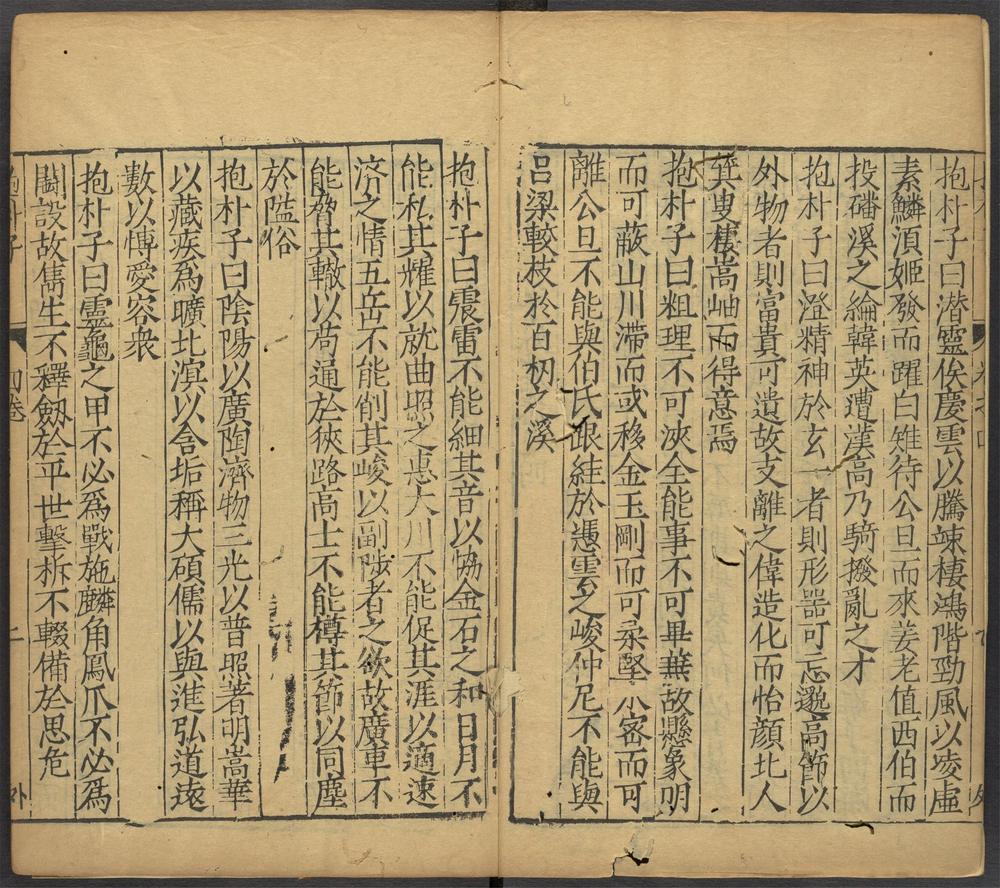 抱朴子曰潛靈俟慶雲以騰竦棲鴻階勁風以凌虛
素鱗湏姬發而躍白雉待公旦而來姜老值西伯而
投磻溪之綸韓英遭漢高乃騁撥亂之才
抱朴子曰澄精神於玄一者則形噐可忘邈高節以
外物者則富貴可遺故支離之偉造化而怡顏北人
箕叟棲嵩岫而得意焉
抱朴子曰粗理不可浹全能事不可畢兼故懸象明
而可蔽山川滯而或移金玉剛而可柔堅氷密而可
離公旦不能與伯氏跟絓於馮雲之峻仲尼不能與
吕梁較枝於百仞之溪
抱朴子曰震雷不能細其音以協金石之和日月不
能私其耀以就曲照之惠大川不能促其涯以適速
济之情五岳不能削其峻以副陟者之欲故廣車不
能脅其轍以苟通於狹路高士不能撙其節以同塵
於隘俗
抱朴子曰陰陽以廣陶濟物三光以普照著明嵩華
以藏疾爲曠北溟以含垢稱大碩儒以與進弘道遠
數以博愛容衆
抱朴子曰靈龜之甲不必爲戰施麟角鳳爪不必爲
鬭設故雋生不釋劔於平世擊柝不輟備於思危
抱朴子
初卷
二
外